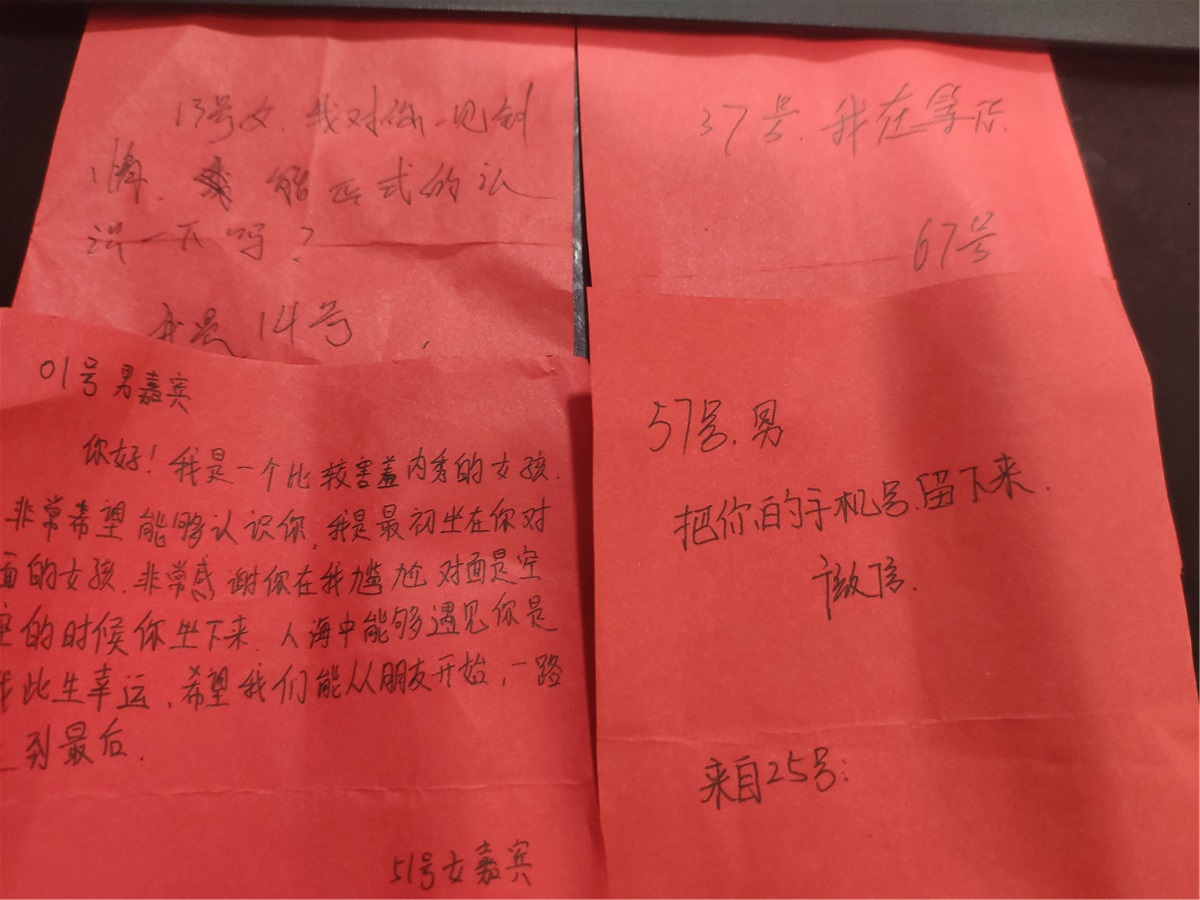 13号女.我对你一见钟
情.能正式的认
识一下吗?
我是14号
37号.我在等你.
67号
01号男嘉宾
你好!我是一个比较害羞内秀的女孩.
非常希望能够认识你,我是最初坐在你对
面的女孩.非常感谢你在我尴尬对面是空
座的时候你坐下来.人海中能够遇见你是
我此生幸运,希望我们能从朋友开始,一路
到最后.
51号女嘉宾
57号.男
把你的手机号.留下来.
微信.
来自25号: